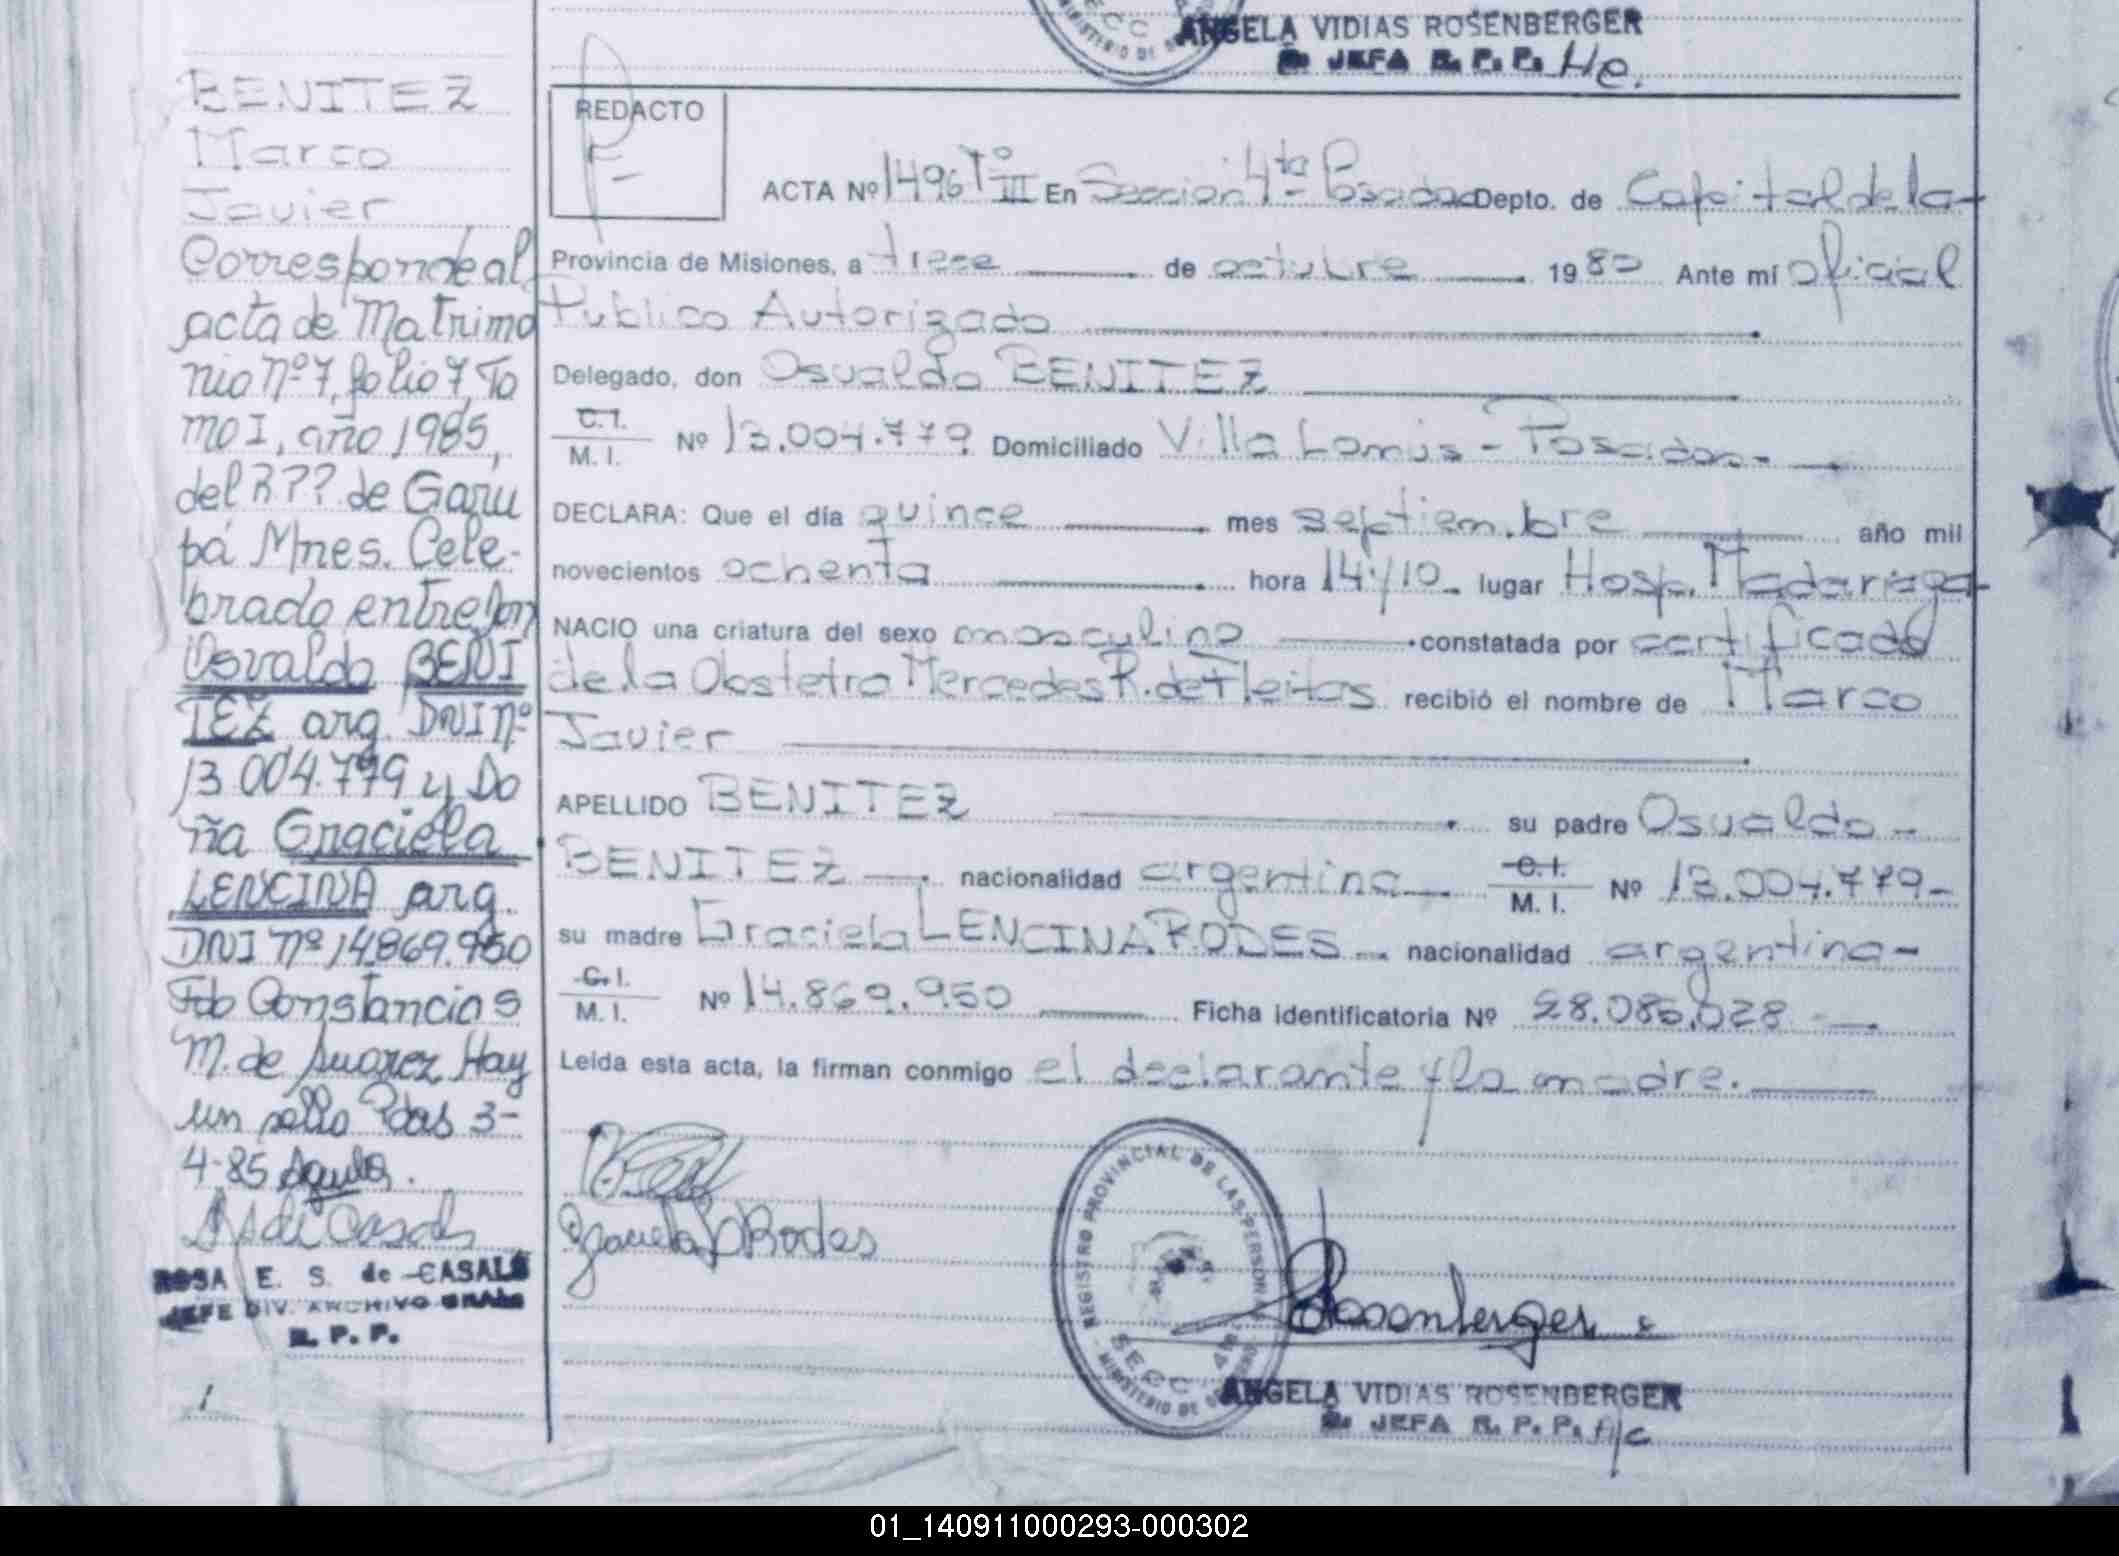 ANGELA VIDIAS ROSENBERGER
JEFA R. P. P. He.
BENITEZ
Marco
Javier
Corresponde al
acta de Matrimo
nio Nº 7, folio 7, To
mo I, año 1985,
del R?? de Garu
pá Mnes. Cele-
brado entre Don
Osvaldo BENI
TEZ arg. DNI Nº
13.004.779 y Do
ña Graciela
LENCINA arg.
DNI Nº 14.869.950
Fdo Constancia S
M. de Suarez Hay
un sello Pdas 3-
4-85
ROSA E. S. de CASALS
JEFE DIV. ARCHIVO GRAL
R. P. P.
REDACTO
ACTA Nº 1496 Tº III En Sección 4ta - Posadas Depto. de Capital de la
Provincia de Misiones, a trece de octubre 1980 Ante mí oficial
Publico Autorizado
Delegado, don Osvaldo BENITEZ
C.I.
M. I. Nº 13.004.779 Domiciliado Villa Lomis - Posadas -
DECLARA: Que el día quince mes septiembre año mil
novecientos ochenta hora 14y10 - lugar Hosp. Madariaga
NACIO una criatura del sexo masculino constatada por certificado
de la Obstetra Mercedes R. de Fleitas recibió el nombre de Marco
Javier
APELLIDO BENITEZ su padre Osvaldo -
BENITEZ nacionalidad argentina C.I.
M. I. Nº 13.004.779 -
su madre Graciela LENCINA RODES nacionalidad argentina -
C.I.
M. I. Nº 14.869.950 Ficha identificatoria Nº 28.085.028
Leída esta acta, la firman conmigo el declarante y la madre.
Graciela L Rodes
REGISTRO PROVINCIAL DE LAS PERSONAS
SECC 4ta
MINISTERIO DE
Rosenberger
ANGELA VIDIAS ROSENBERGER
JEFA R. P. P. A/C
01_140911000293-000302